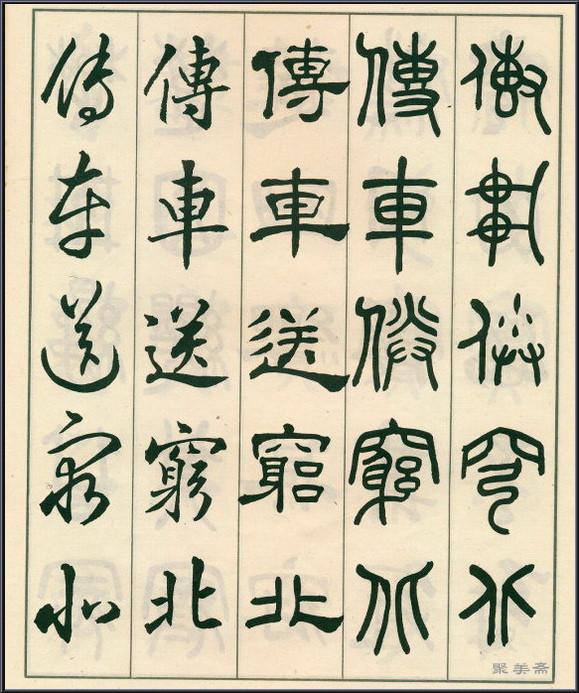 傳車送窮北
傳車送窮北
傳車送窮北
傳車送窮北
傳車送窮北
聚美斋